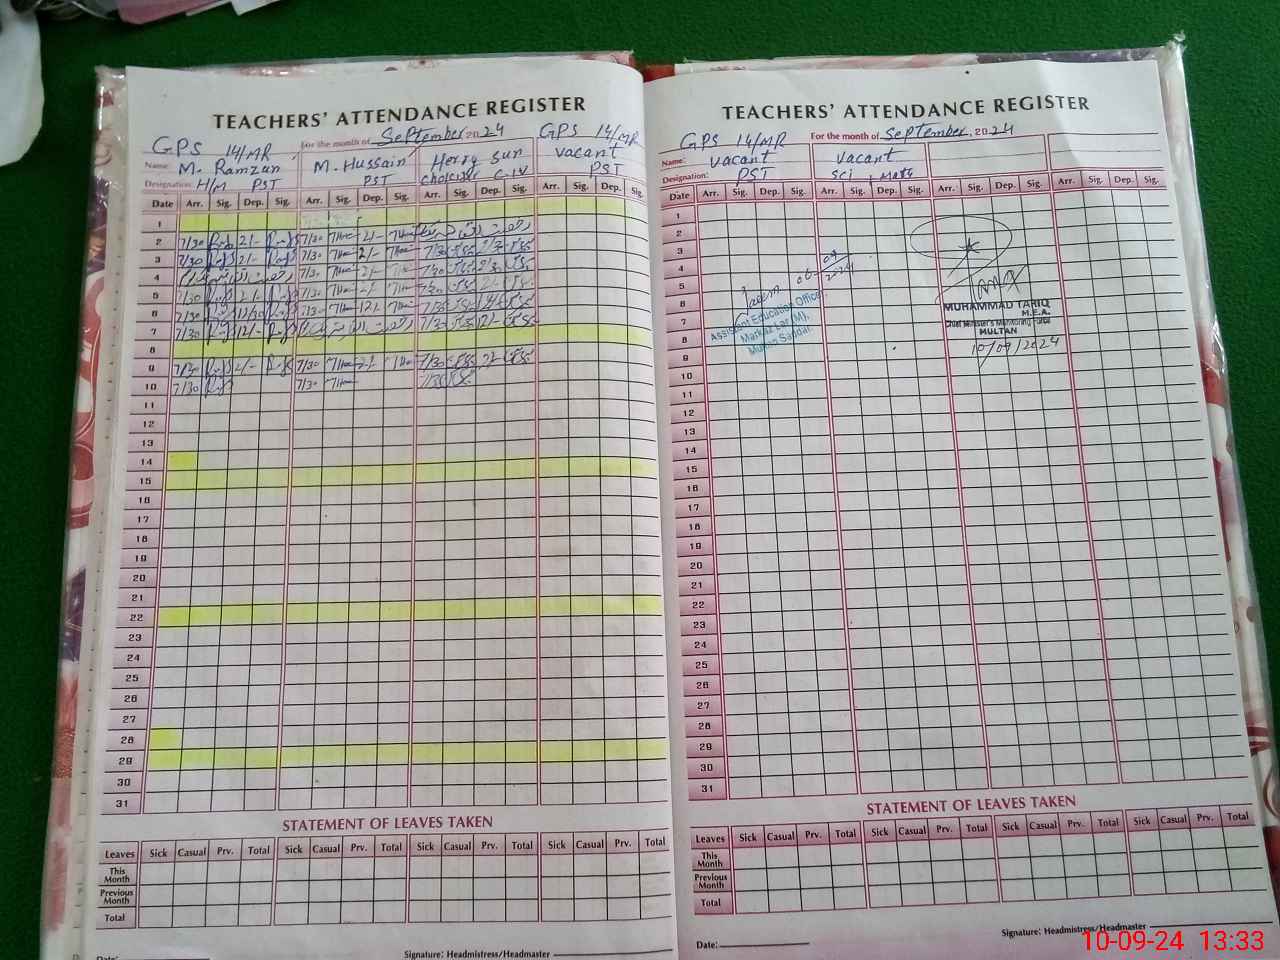 TEACHERS' ATTENDANCE REGISTER
GPS 14/MR For the month of September 2024 GPS 14/MR
Name: M. Ramzan M. Hussain Herry Sun vacant
Designation: H/M PST PST C-IV PST
Date Arr. Sig. Dep. Sig. Arr. Sig. Dep. Sig. Arr. Sig. Dep. Sig. Arr. Sig. Dep. Sig.
1
2 7/30 2/- 7/30 2/-
3 7/30 2/- 7/30 2/- 7/30
4 7/30 2/- 7/30
5 7/30 2/- 7/30 2/- 7/30
6 7/30 12/30 7/30 12/- 7/30
7 7/30 12/- 7/30 12/-
8
9 7/30 2/- 7/30 2/- 7/30 2/-
10 7/30 7/30 7/30
11
12
13
14
15
16
17
18
19
20
21
22
23
24
25
26
27
28
29
30
31
STATEMENT OF LEAVES TAKEN
Leaves Sick Casual Prv. Total Sick Casual Prv. Total Sick Casual Prv. Total Sick Casual Prv. Total
This Month
Previous Month
Total
Date: Signature: Headmistress/Headmaster
TEACHERS' ATTENDANCE REGISTER
GPS 14/MR For the month of September, 2024
Name: vacant vacant
Designation: PST Sci, Math
Date Arr. Sig. Dep. Sig. Arr. Sig. Dep. Sig. Arr. Sig. Dep. Sig. Arr. Sig. Dep. Sig.
1
2
3
4
5
6
7
8
9
10
11
12
13
14
15
16
17
18
19
20
21
22
23
24
25
26
27
28
29
30
31
06-09
2024
Assistant Education Officer
Markaz Lar (M),
Multan Saddar.
MUHAMMAD TARIQ
M.E.A.
Chief Minister's Monitoring Force
MULTAN
10/09/2024
STATEMENT OF LEAVES TAKEN
Leaves Sick Casual Prv. Total Sick Casual Prv. Total Sick Casual Prv. Total Sick Casual Prv. Total
This Month
Previous Month
Total
Date: Signature: Headmistress/Headmaster
10-09-24 13:33